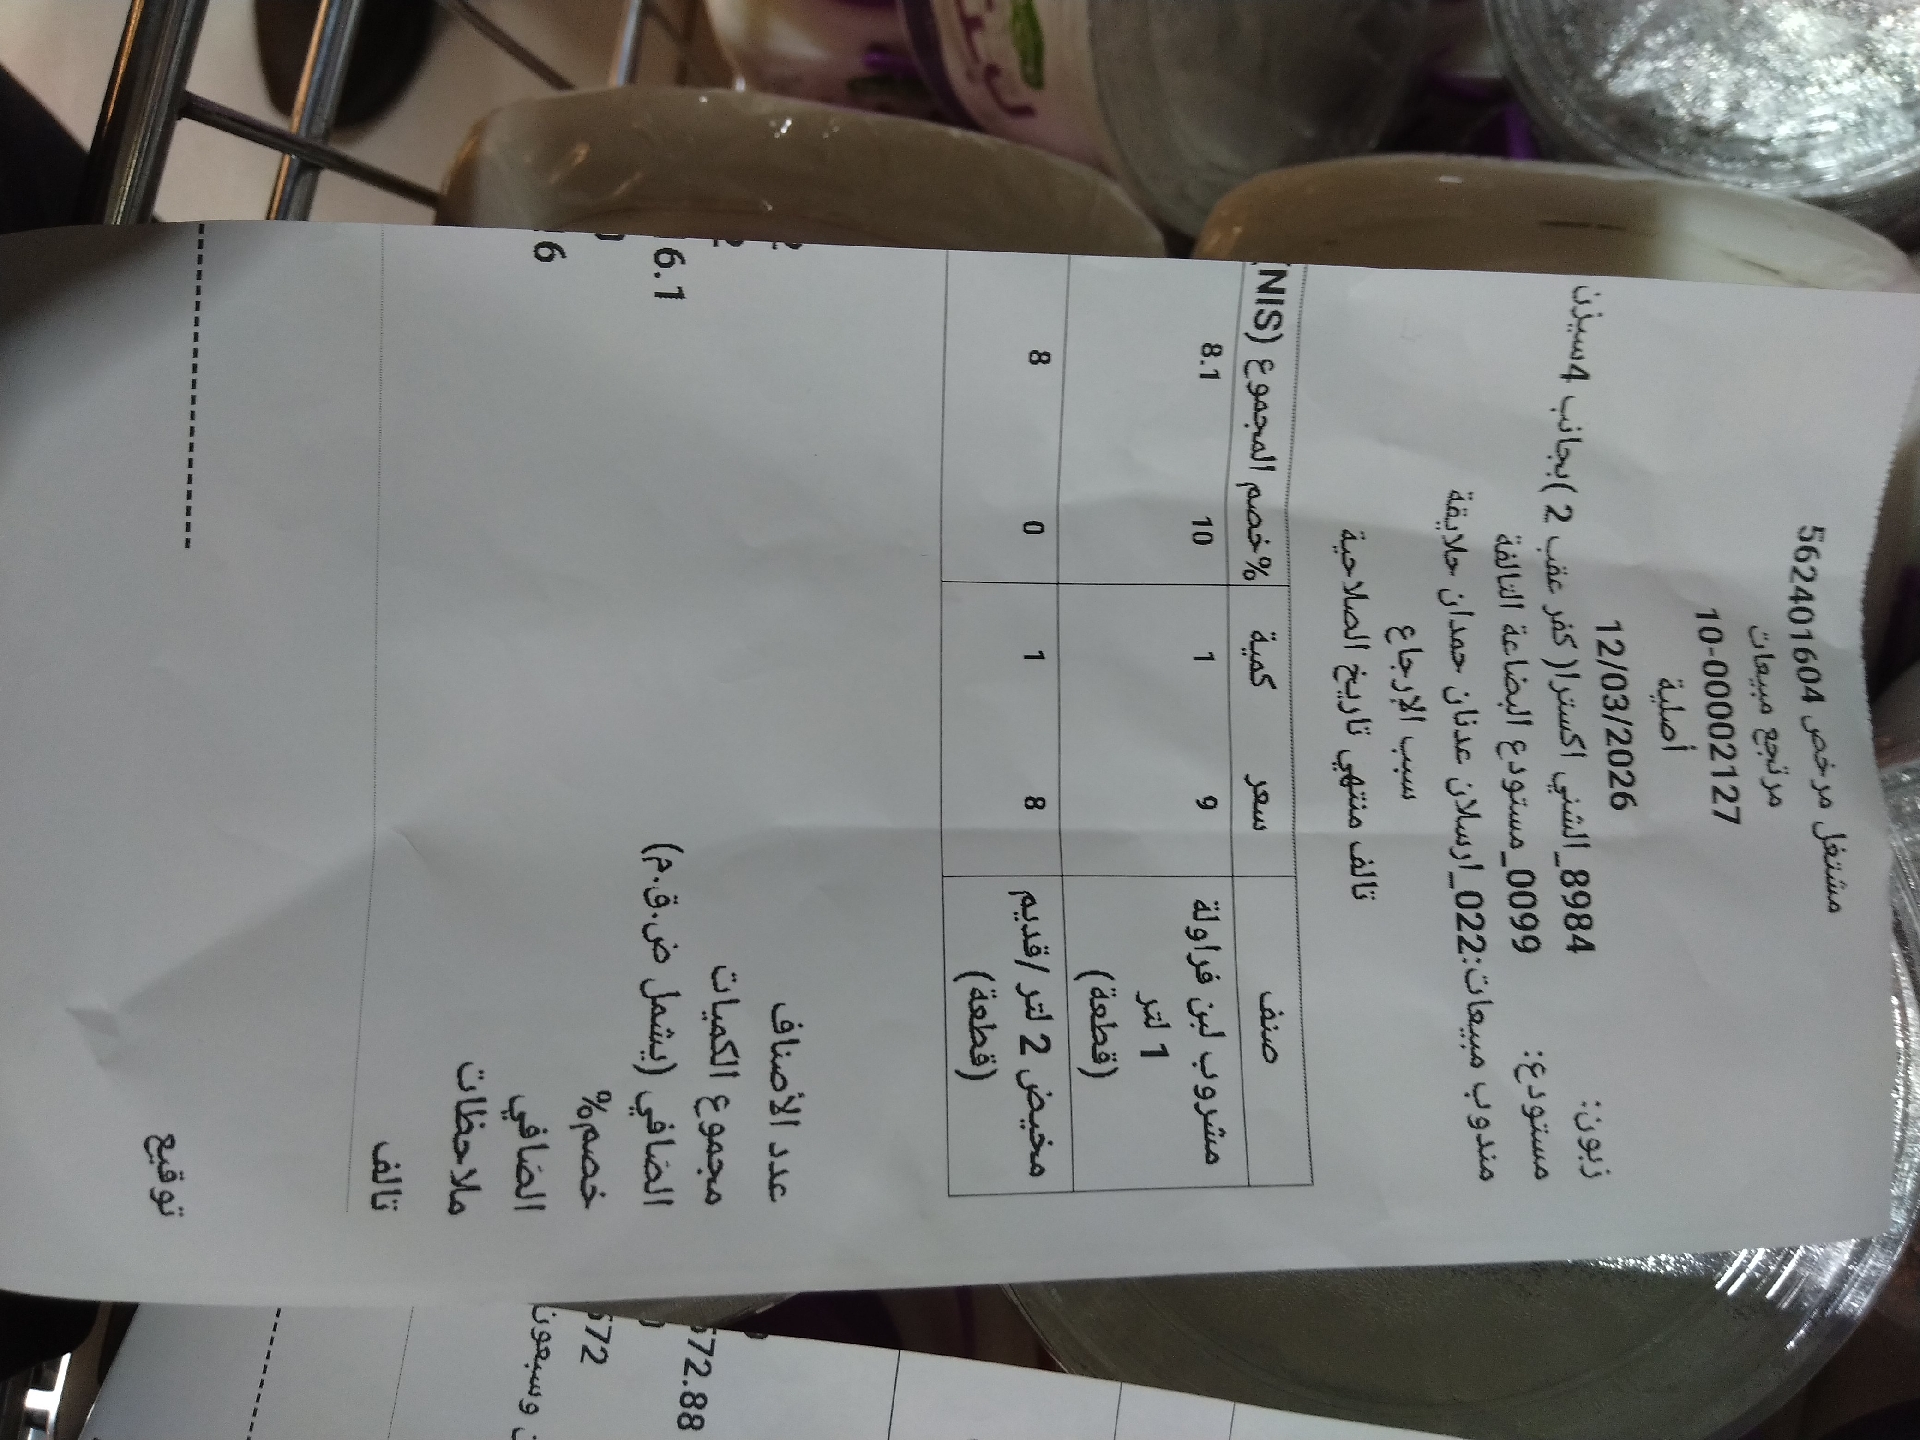 مشتغل مرخص 562401604
مرتجع مبيعات
10-00002127
أصلية
12/03/2026
زبون: 8984_الشني اكسترا( كفر عقب 2 )بجانب 4سيزن
مستودع: 0099_مستودع البضاعة التالفة
مندوب مبيعات:022_ارسلان عدنان حمدان حلايقة
سبب الإرجاع
تالف منتهي تاريخ الصلاحية
صنف سعر كمية %خصم المجموع (NIS
مشروب لبن فراولة 9 1 10 8.1
1 لتر
(قطعة)
مخيض 2 لتر /قديم 8 1 0 8
(قطعة)
عدد الأصناف 2
مجموع الكميات 2
الصافي (يشمل ض.ق.م) 6.1
خصم%
الصافي 6
ملاحظات
تالف
توقيع
572.88
572
وسبعون